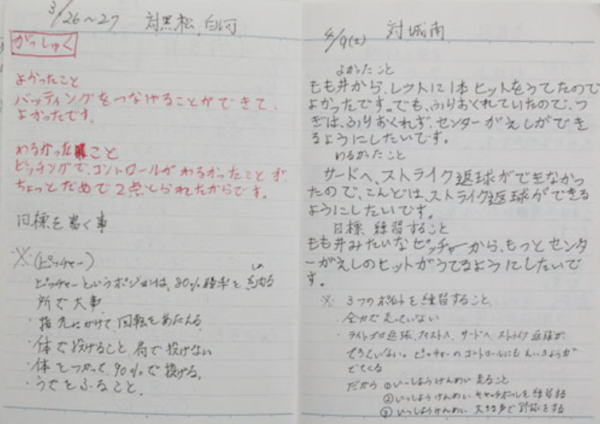 3/26〜27 対黒松、白河
がっしゅく
よかったこと
バッティングをつなげることができて、
よかったです。
わるかったこと
ピッチングで、コントロールがわるかったこと
ちょっとだめで2点とられたからです。
目標を書く事
※(ピッチャー)
ピッチャーというポジションは、80%勝率を占める
所で大事。
・指先にかけて、回転をあたえる。
・体で投げること 肩で投げない
・体をつかって、90%で投げる。
・うでをふること。
4/9(土) 対城南
よかったこと
もも井から、レフトに1本ヒットをうてたので
よかったです。でも、ふりおくれていたので、つ
ぎは、ふりおくれず、センターがえしができ
るようにしたいです。
わるかったこと
サードへ、ストライク返球ができなかっ
たので、こんどは、ストライク返球ができる
ようにしたいです。
目標 練習すること
もも井みたいなピッチャーから、もっとセンタ
ーがえしのヒットがうてるようにしたいで
す。
※ 3つのポイントを練習すること
・全力で走っていない
・ライトゴロ返球、ファースト、サードへ ストライク返球が
できていない。ピッチャーのコントロールにもえいきょうが
でてくる
だから ①いっしょうけんめい走ること
②いっしょうけんめいキャッチボールを練習する
③いっしょうけんめい 大きな声で野球をする